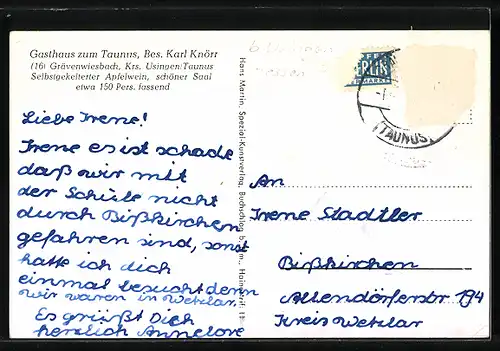 Gasthaus zum Taunus, Bes. Karl Knörr
(16) Grävenwiesbach, Krs. Usingen/Taunus
Selbstgekelterter Apfelwein, schöner Saal
etwa 150 Pers. fassend
Liebe Irene!
Irene es ist schade
daß wir mit
der Schule nicht
durch Bißkirchen
gefahren sind, sonst
hätte ich dich
einmal besucht denn
wir waren in Wetzlar.
Es grüßt Dich
herzlich Annelore
Hans Martin, Spezial-Kunstverlag, Buchschlag b. Ffm.
b. Usingen
BERLIN
TAUNUS
An
Irene Stadtler
Bißkirchen
Allendörferstr 194
Kreis Wetzlar